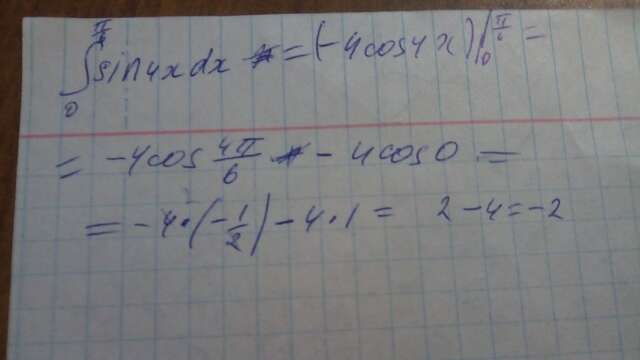 ∫₀^(π/6) sin4xdx = (-4cos4x)|₀^(π/6) =
= -4cos 4π/6 - 4cos0 =
= -4·(-1/2) - 4·1 = 2-4=-2